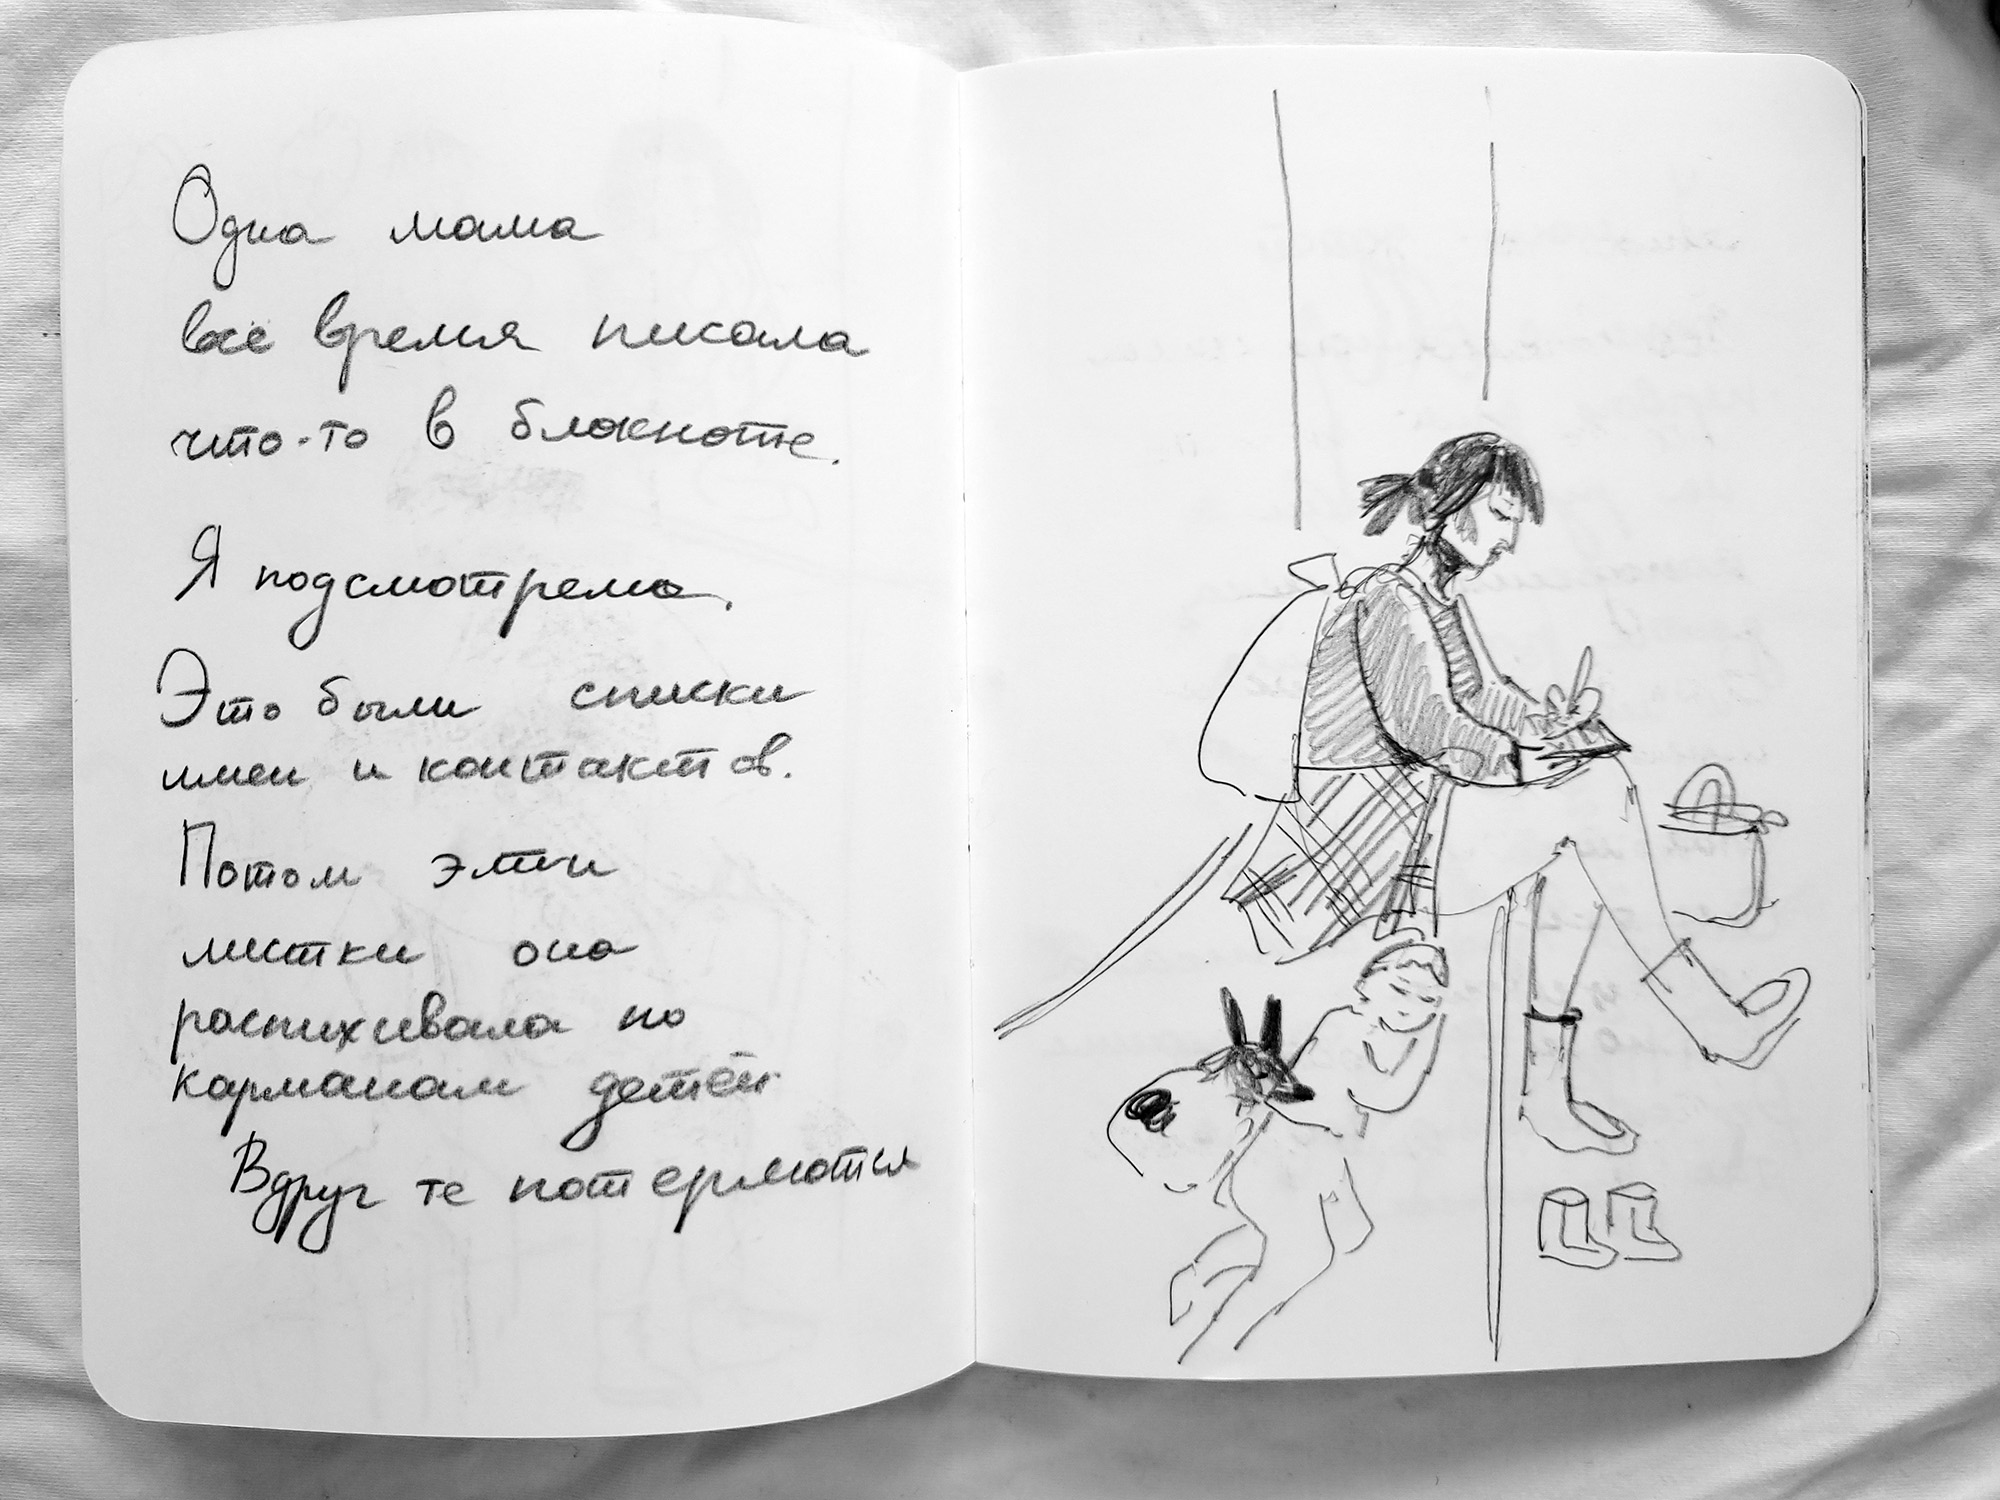 Одна мама
всё время писала
что-то в блокноте.
Я подсмотрела.
Это были списки
имен и контактов.
Потом эти
листки она
распихивала по
карманам детей
Вдруг те потеряются